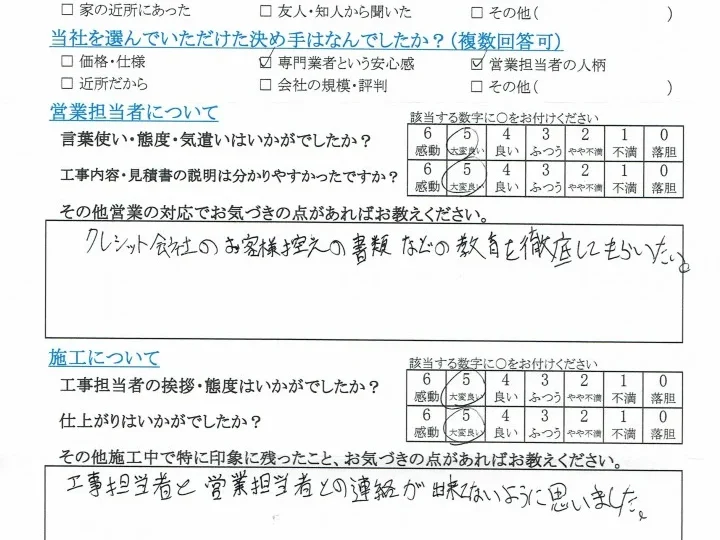 □ 家の近所にあった □ 友人・知人から聞いた □ その他( )
当社を選んでいただけた決め手はなんでしたか？(複数回答可)
□ 価格・仕様 ☑ 専門業者という安心感 ☑ 営業担当者の人柄
□ 近所だから □ 会社の規模・評判 □ その他( )
営業担当者について
該当する数字に○をお付けください
言葉使い・態度・気遣いはいかがでしたか？
6 5 4 3 2 1 0
感動 大変良い 良い ふつう やや不満 不満 落胆
工事内容・見積書の説明は分かりやすかったですか？
6 5 4 3 2 1 0
感動 大変良い 良い ふつう やや不満 不満 落胆
その他営業の対応でお気づきの点があればお教えください。
クレジット会社のお客様控えの書類などの教育を徹底してもらいたい。
施工について
該当する数字に○をお付けください
工事担当者の挨拶・態度はいかがでしたか？
6 5 4 3 2 1 0
感動 大変良い 良い ふつう やや不満 不満 落胆
仕上がりはいかがでしたか？
6 5 4 3 2 1 0
感動 大変良い 良い ふつう やや不満 不満 落胆
その他施工中で特に印象に残ったこと、お気づきの点があればお教えください。
工事担当者と営業担当者との連絡が出来てないように思いました。